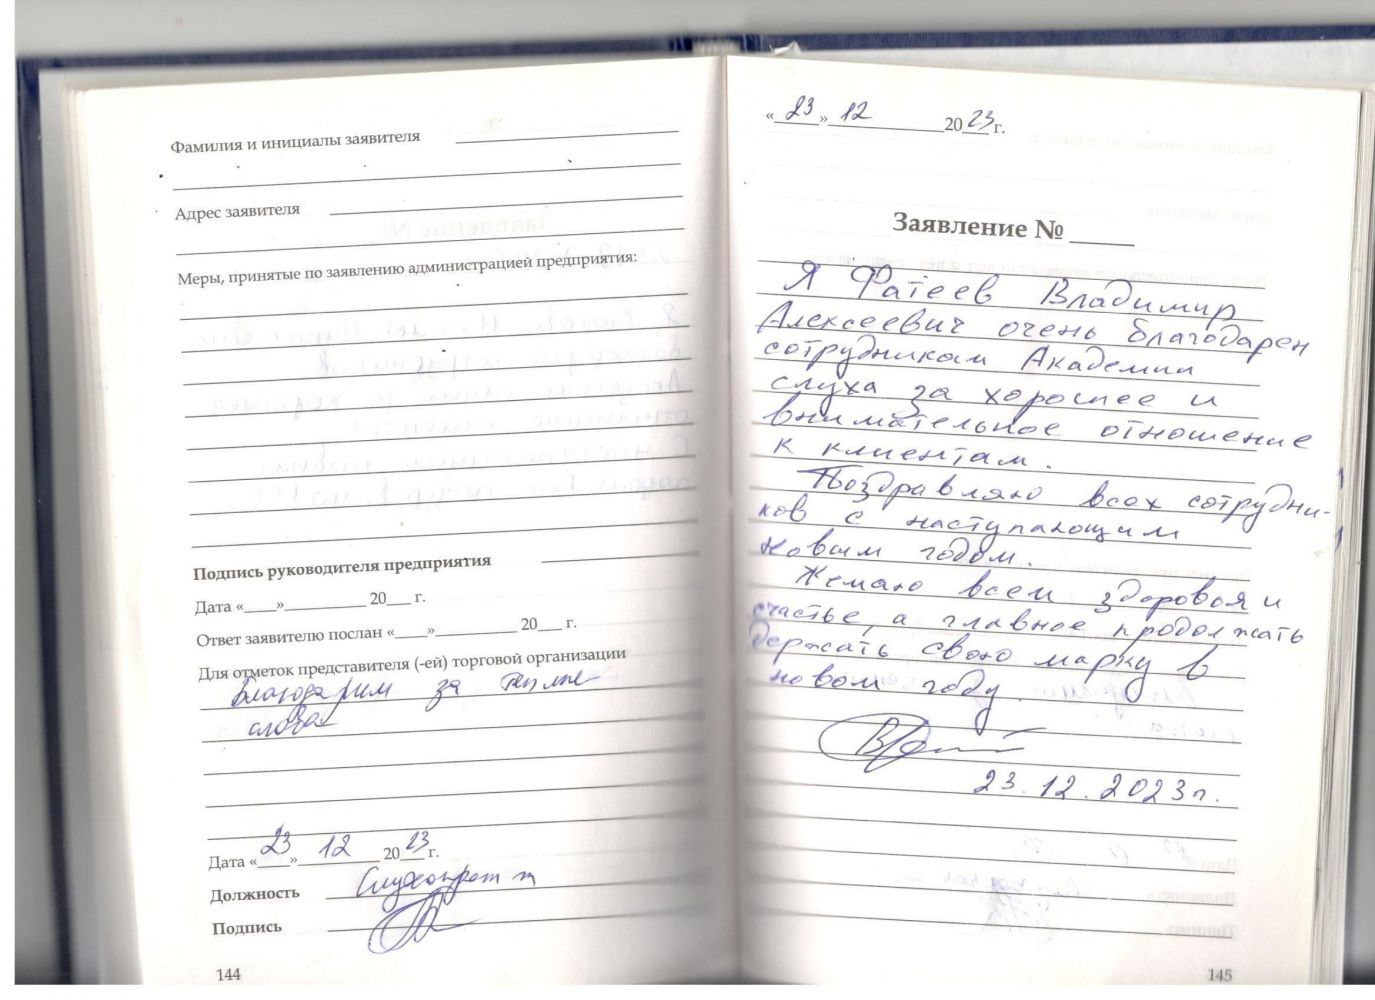 Фамилия и инициалы заявителя
Адрес заявителя
Меры, принятые по заявлению администрацией предприятия:
Подпись руководителя предприятия
Дата «____»__________ 20___ г.
Ответ заявителю послан «____»__________ 20___ г.
Для отметок представителя (-ей) торговой организации
Благодарим за
слова
Дата «23» 12 2023 г.
Должность
Подпись
144
«23» 12 2023 г.
Заявление № _____
Я Фатеев Владимир
Алексеевич очень благодарен
сотрудникам Академии
слуха за хорошее и
внимательное отношение
к клиентам.
Поздравляю всех сотрудни-
ков с наступающим
Новым годом.
Желаю всем здоровья и
счастье, а главное продолжать
держать свою марку в
новом году.
23.12.2023г.
145